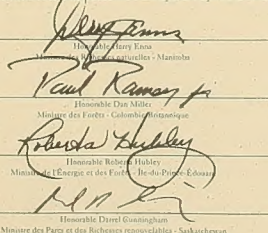 Harry Enns
Honorable Harry Enns
Ministre des Richesses naturelles - Manitoba
Paul Ramsey
Honorable Dan Miller
Ministre des Forêts - Colombie-Britannique
Roberta Hubley
Honorable Roberta Hubley
Ministre de l'Énergie et des Forêts - Île-du-Prince-Édouard
Honorable Darrel Cunningham
Ministre des Parcs et des Richesses renouvelables - Saskatchewan